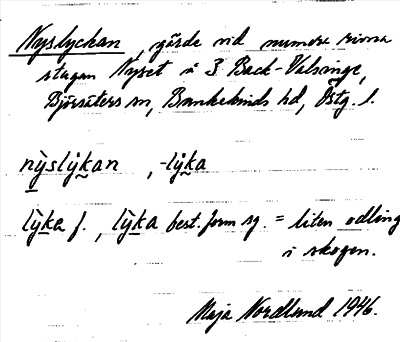 Nyslyckan, gärde vid numera rivna
stugan Nyset å 3 Back-Valsinge,
Björsäters sn, Bankekinds hd, Östg. l.
nýslỳkan, -lỳka
lỳka f., lỳka best. form sg. = liten odling
i skogen.
Maja Nordlund 1946.